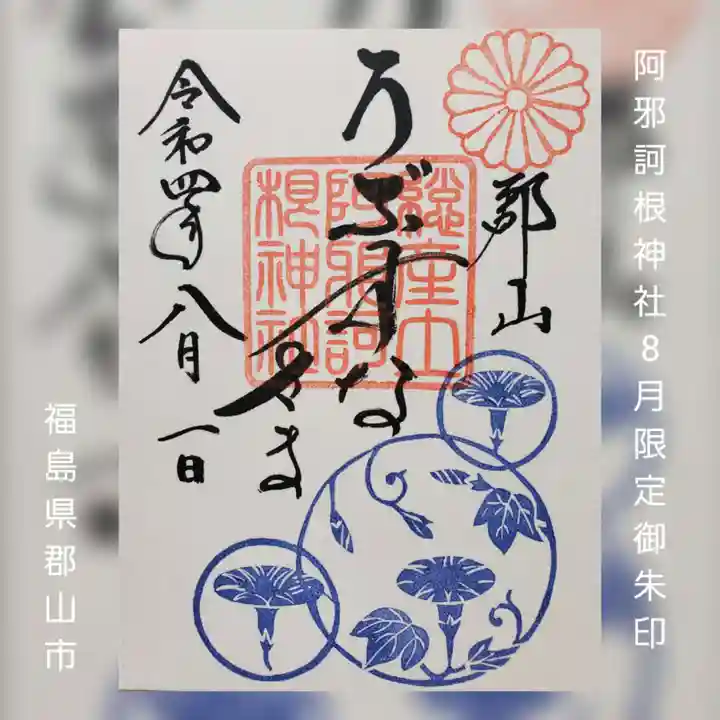 阿邪訶根神社8月限定御朱印
郡山
うぶすな
さま
総産土
阿邪訶
根神社
令和四年八月一日
福島県郡山市